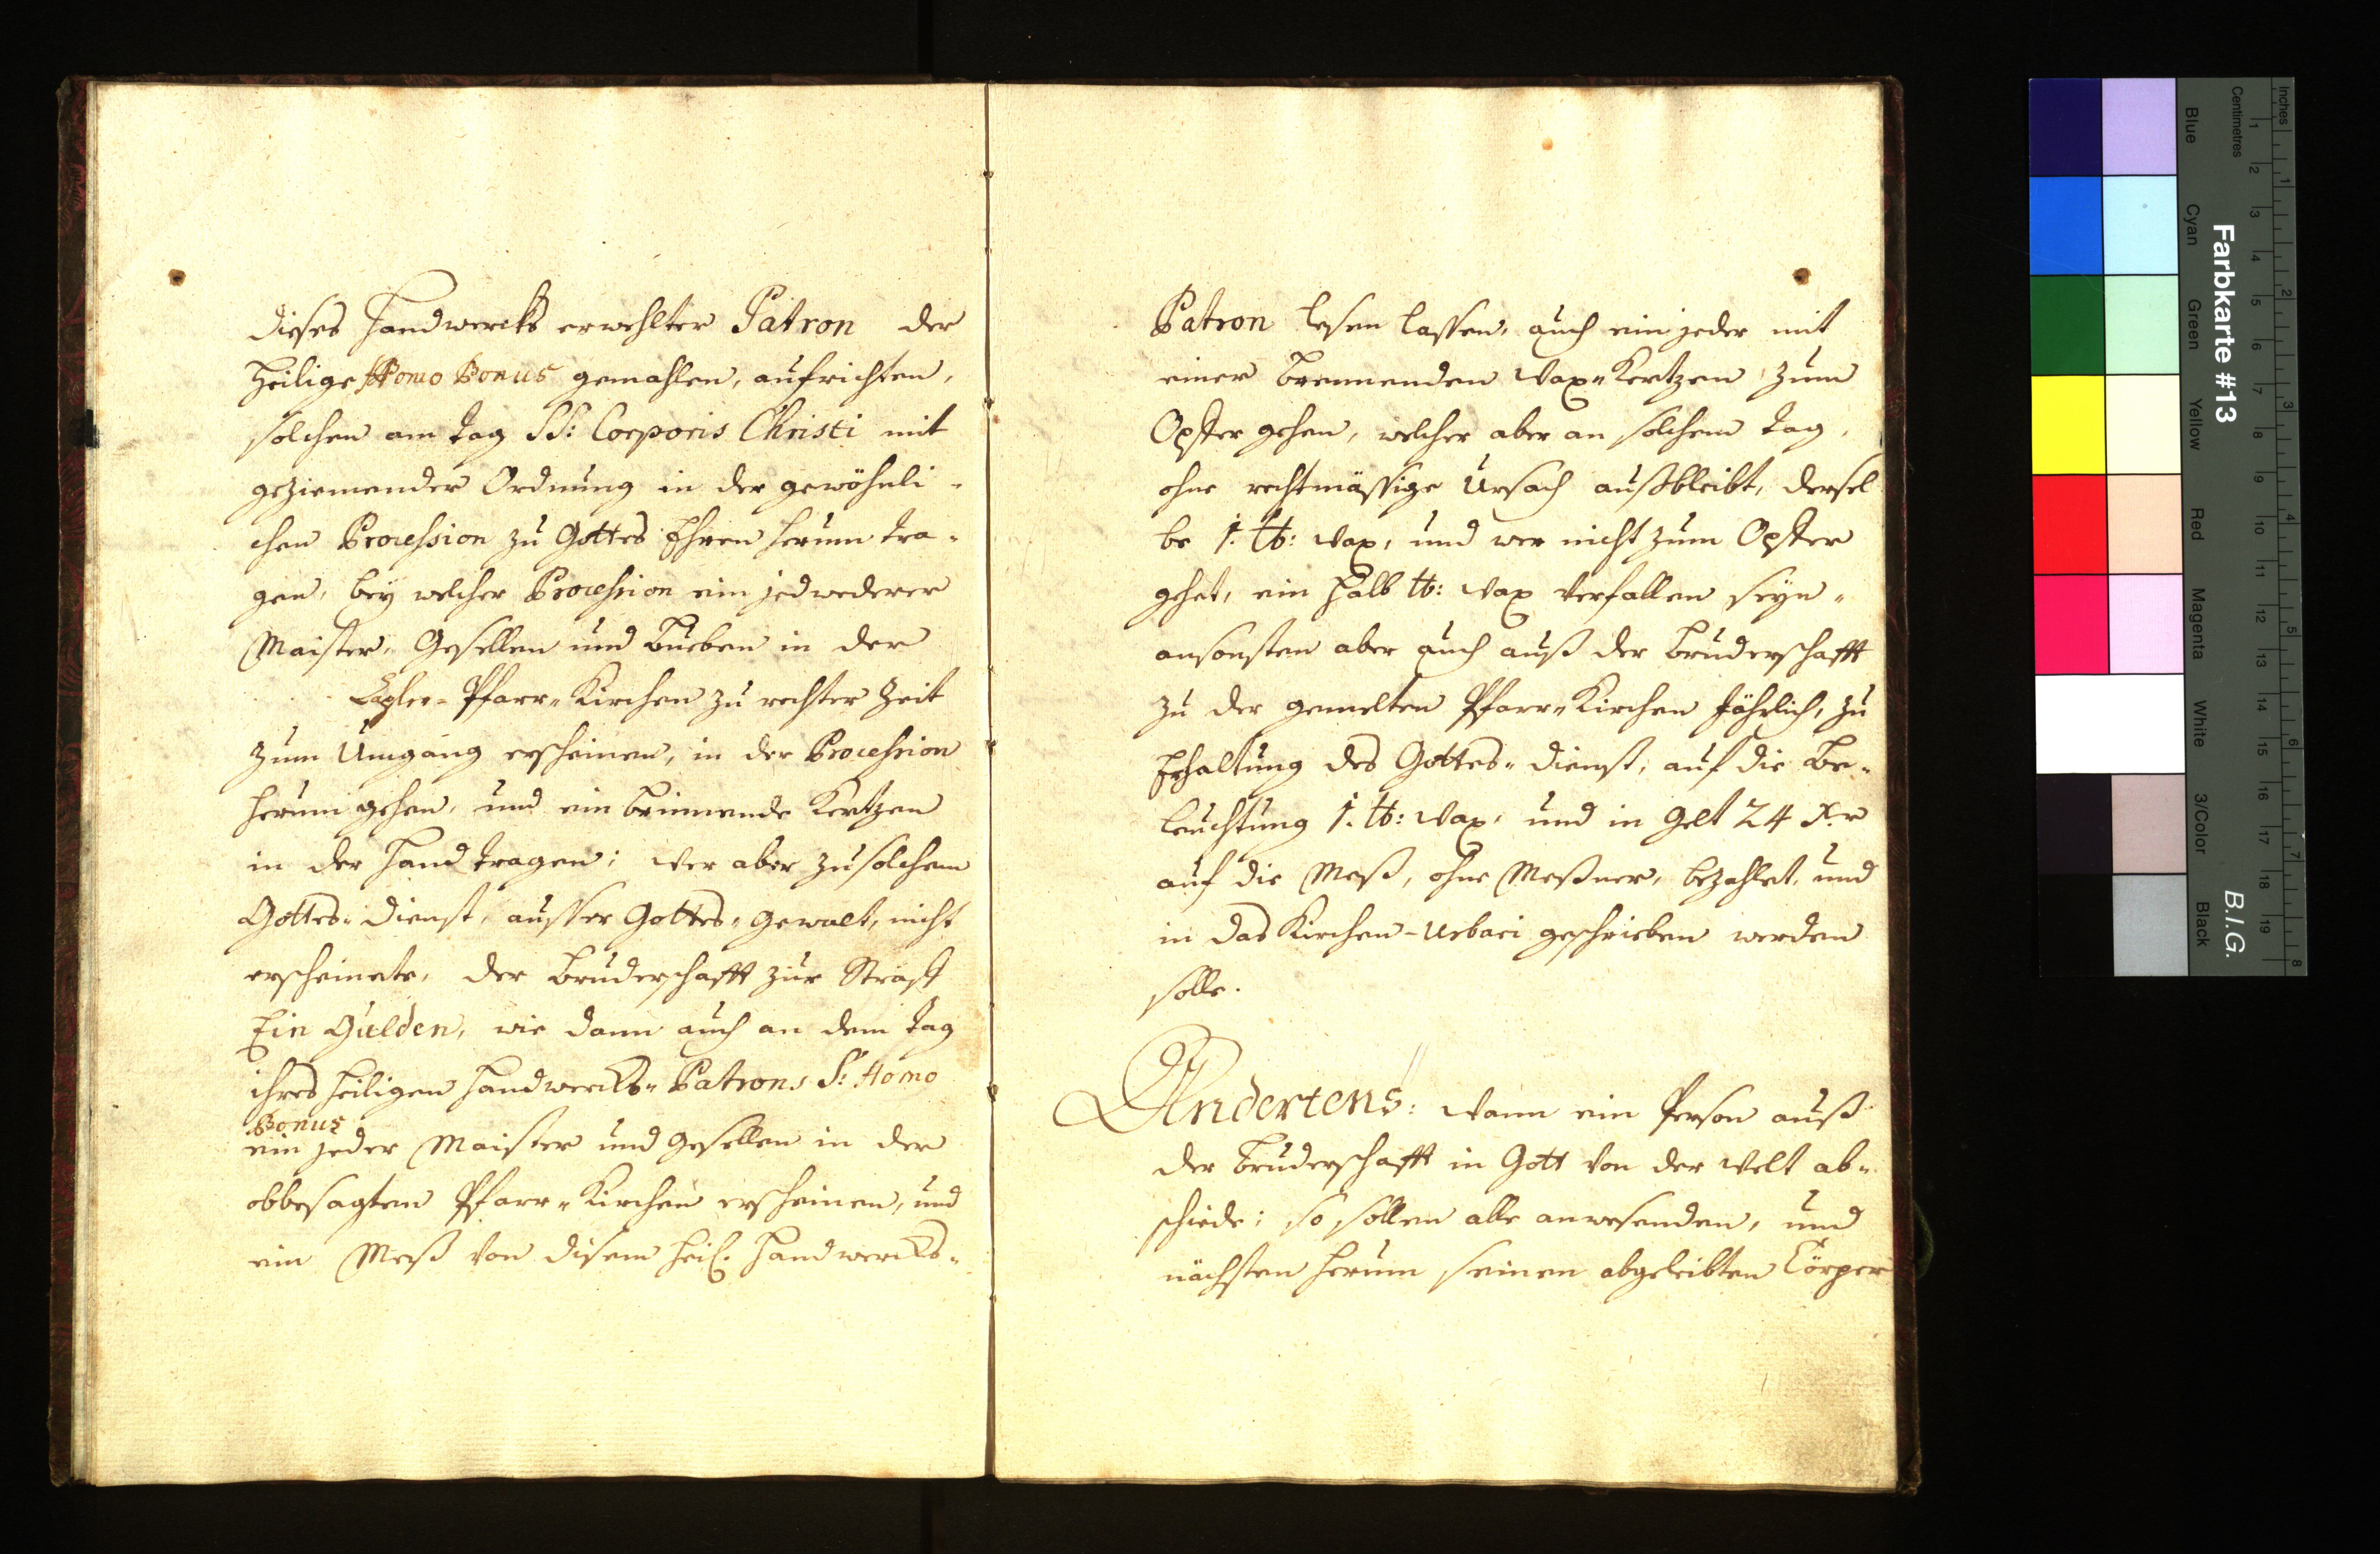 dieses Handwercks erwehlter Patron der
Heilige Homo Bonus gemahlen, aufrichten,
solchen am Tag SS: Corporis Christi mit
geziemender Ordnung in der gewöhnli-
chen Procession zu Gottes Ehren herum tra-
gen, bey welcher Procession ein jedwederer
Maister, Gesellen und Bueben in der
Pfarr-Kirchen zu rechter Zeit
zum Umgang erscheinen, in der Procession
herum gehen, und ein brinnende Kertzen
in der Hand tragen; Wer aber zu solchem
Gottes-Dienst, ausser Gottes-Gewalt, nicht
erscheinete, der Bruderschafft zur Straff
Ein Gulden, wie dann auch an dem Tag
ihres Heiligen Handwercks-Patrons S: Homo
Bonus
ein jeder Maister und Gesellen in der
obbesagten Pfarr-Kirchen erscheinen, und
ein Meß von disem Heil. Handwercks-
Patron lesen lassen, auch ein jeder mit
einer brennenden Wax-Kertzen zum
Opffer gehen, welcher aber an solchem Tag,
ohne rechtmässige Ursach außbleibt, dersel
be 1. ℔: Wax, und wer nicht zum Opffer
gehet, ein halb ℔: Wax verfallen seyn,
ansonsten aber auch auß der Bruderschafft
zu der gemelten Pfarr-Kirchen jährlich, zu
Erhaltung des Gottes-Dienst, auf die Be-
leuchtung 1. ℔: Wax, und in Gelt 24 Xr
auf die Meß, ohne Meßner, bezahlet, und
in das Kirchen-Urbari geschrieben werden
solle.
Andertens: Wann ein Person auß
der Bruderschafft in Gott von der Welt ab-
schiede; so sollen alle anwesenden, und
nächsten herum seinen abgeleibten Cörper
Farbkarte #13
B.I.G.
Inches
Centimetres
1 2 3 4 5 6 7 8
1 2 3 4 5 6 7 8 9 10 11 12 13 14 15 16 17 18 19
Blue
Cyan
Green
Yellow
Red
Magenta
White
3/Color
Black